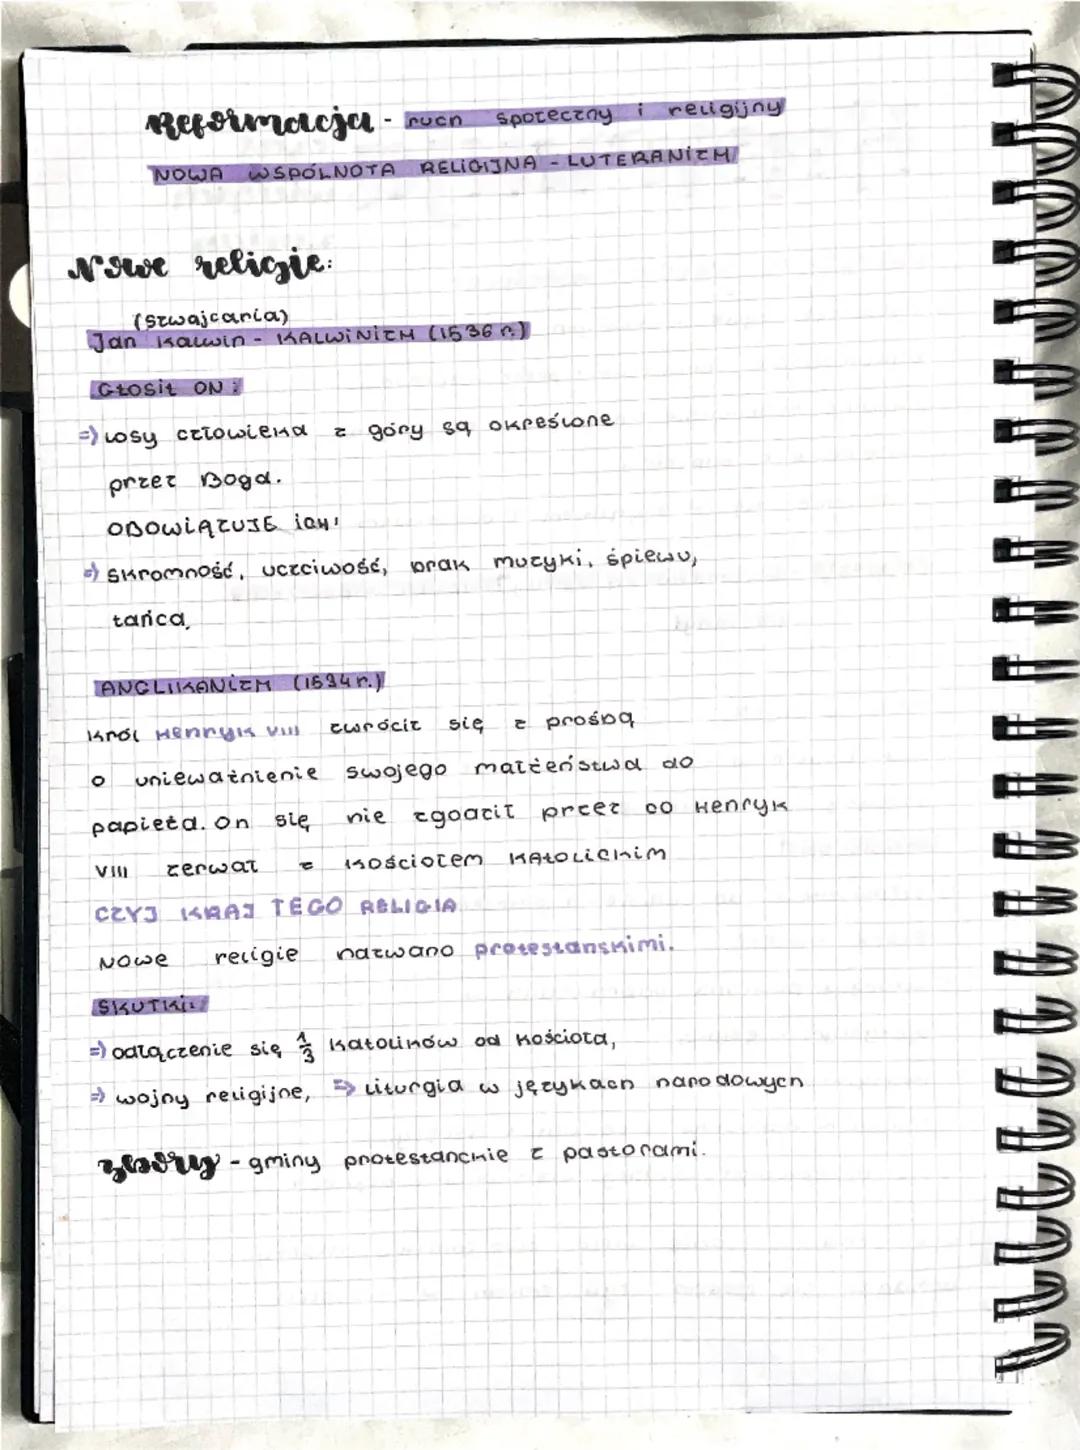 Reformacja - ruch społeczny i religijny
NOWA WSPÓLNOTA RELIGIJNA - LUTERANIZM
Nowe religie:
(Szwajcaria)
Jan Kalwin - KALWINIZM (1536 r.)
GŁOSIŁ ON:
=> losy człowieka z góry są określone
przez Boga.
OBOWIĄZUJE ich:
=> skromność, uczciwość, brak muzyki, śpiewu,
tańca.
ANGLIKANIZM (1534 r.)
Król Henryk VIII zwrócił się z prośbą
o unieważnienie swojego małżeństwa do
papieża. On się nie zgodził przez co Henryk
VIII zerwał z Kościołem Katolickim
CZYJ KRAJ TEGO RELIGIA
Nowe religie nazwano protestanskimi.
SKUTKI:
=> odłączenie się 1/3 katolików od kościoła,
=> wojny religijne, => Liturgia w językach narodowych
zbory - gminy protestanckie z pastorami.